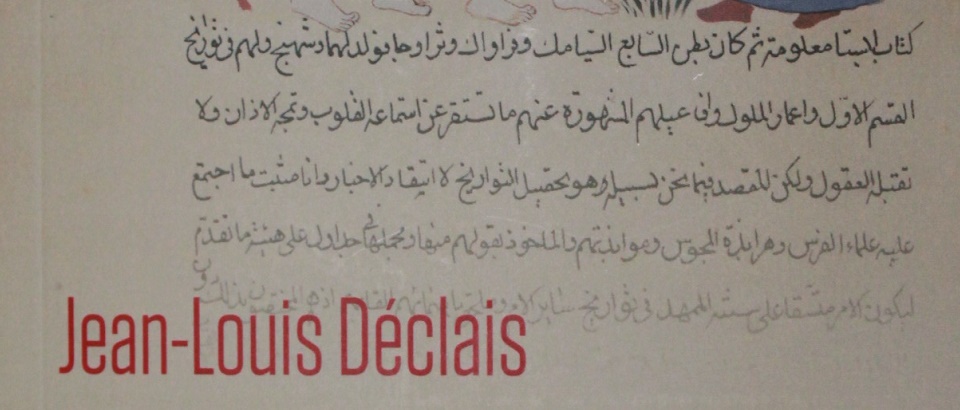 كتاب الابستا معلومة ثم كان بطن السابع السيامك وفراواك وثرا وجا بولد لهما وشهنج ولهم فى تواريخ
القسم الاول واعمار الملوك وافاعيلهم المشهورة عنهم ما تستنفر عن استماعه القلوب وتمجه الاذان ولا
تقبله العقول ولكن المقصد فيما نحن بسبيله هو تحصيل التواريخ لا انتقاد الاخبار وانا مثبت ما اجتمع
عليه علماء الفرس وهرابذة المجوس وموابذتهم والماخوذ بقولهم منها ومجملها فى جداول على هيئة ما تقدم
ليكون الامر متسقا على سنته الممهد فى تواريخ سائر الامم
Jean-Louis Déclais